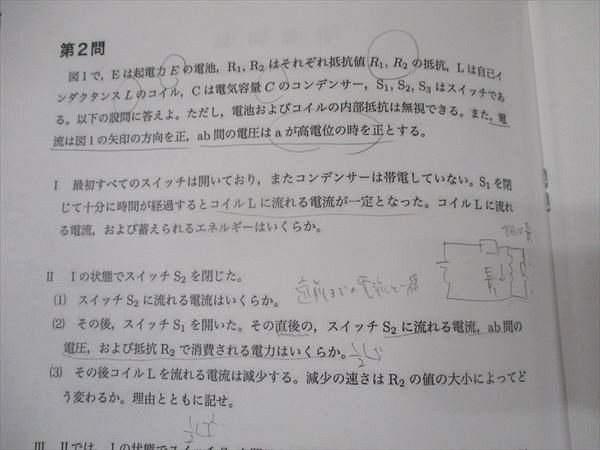 第2問
図1で，Eは起電力Eの電池，R₁, R₂はそれぞれ抵抗値R₁, R₂の抵抗，Lは自己イ
ンダクタンスLのコイル，Cは電気容量Cのコンデンサー，S₁, S₂, S₃はスイッチであ
る。以下の設問に答えよ。ただし，電池およびコイルの内部抵抗は無視できる。また，電
流は図1の矢印の方向を正，ab間の電圧はaが高電位の時を正とする。
I 最初すべてのスイッチは開いており，またコンデンサーは帯電していない。S₁を閉
じて十分に時間が経過するとコイルLに流れる電流が一定となった。コイルLに流れ
る電流，および蓄えられるエネルギーはいくらか。
II Iの状態でスイッチS₂を閉じた。
(1) スイッチS₂に流れる電流はいくらか。
直前までの電流と一緒
(2) その後，スイッチS₁を開いた。その直後の，スイッチS₂に流れる電流，ab間の
電圧，および抵抗R₂で消費される電力はいくらか。
(3) その後コイルLを流れる電流は減少する。減少の速さはR₂の値の大小によってど
う変わるか。理由とともに記せ。
½LI²
III IIでは，Iの状態でスイ